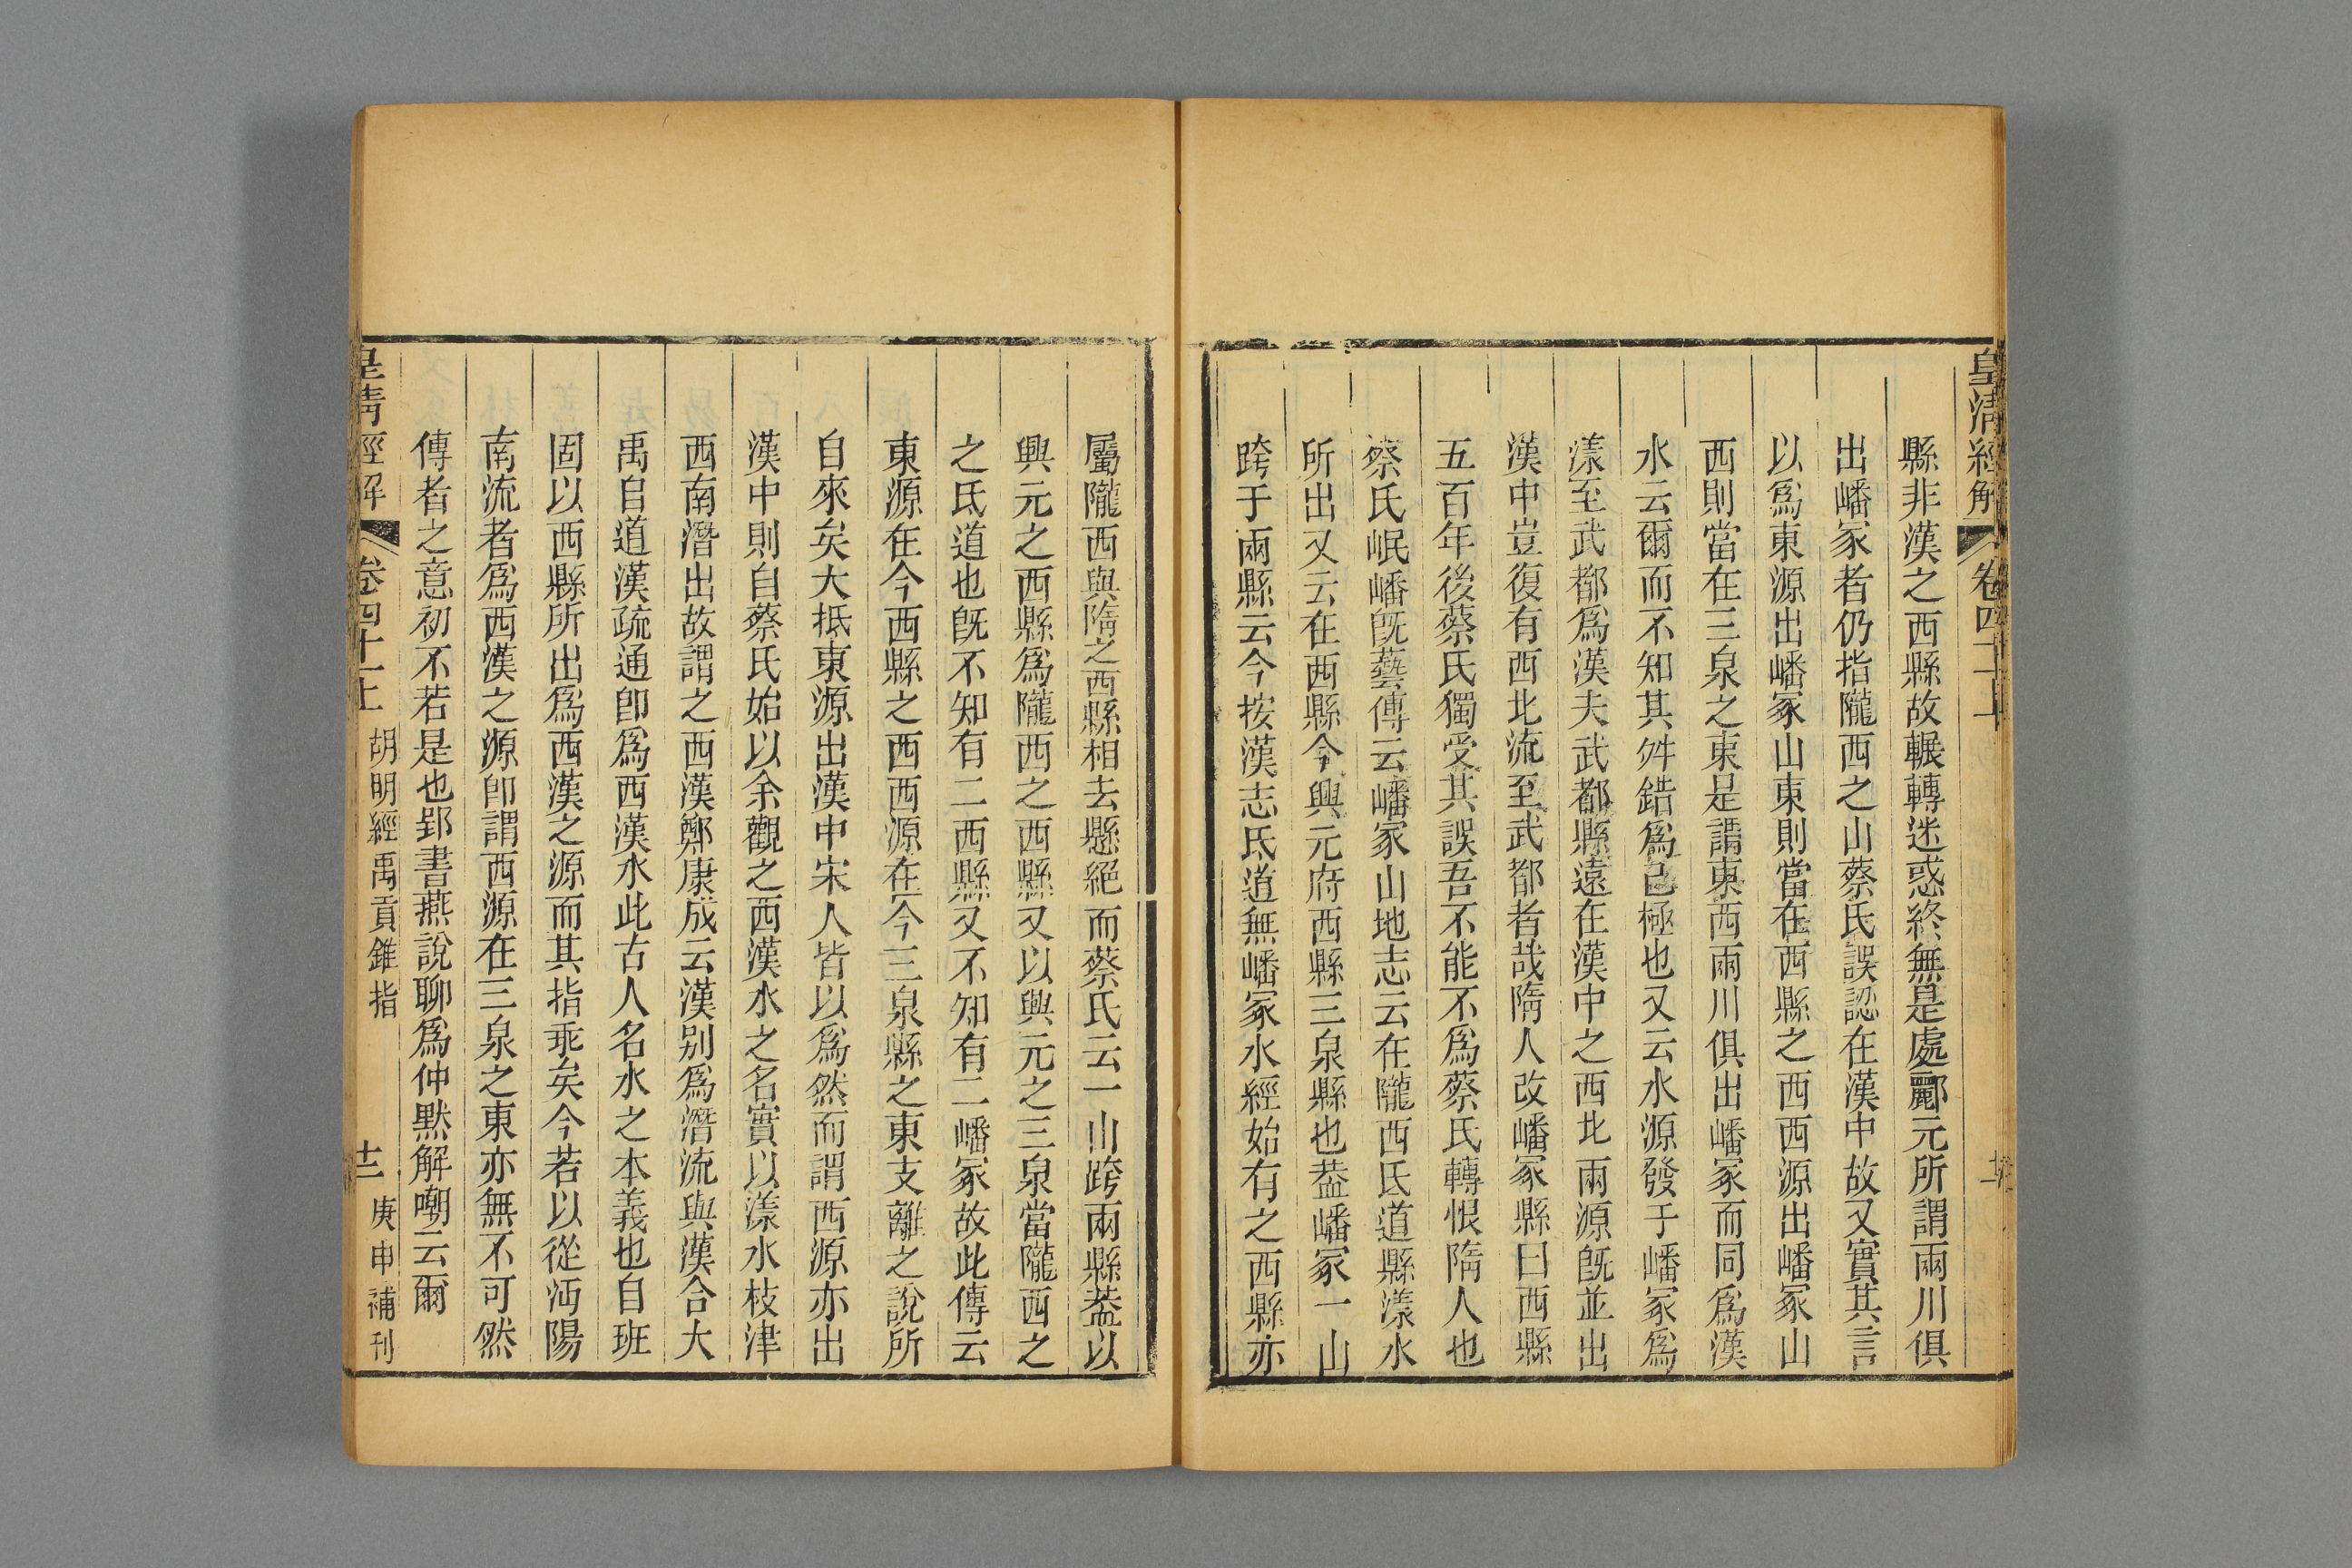 皇清經解 卷四十一上
縣非漢之西縣故輾轉迷惑終無是處酈元所謂兩川俱
出嶓冢者仍指隴西之山蔡氏誤認在漢中故又實其言
以爲東源出嶓冢山東則當在西縣之西西源出嶓冢山
西則當在三泉之東是謂東西兩川俱出嶓冢而同爲漢
水云爾而不知其舛錯爲已極也又云水源發于嶓冢爲
漾至武都爲漢夫武都縣遠在漢中之西北兩源旣並出
漢中豈復有西北流至武都者哉隋人改嶓冢縣曰西縣
五百年後蔡氏獨受其誤吾不能不爲蔡氏轉恨隋人也
蔡氏岷嶓旣藝傳云嶓冢山地志云在隴西氐道縣漾水
所出又云在西縣今興元府西縣三泉縣也葢嶓冢一山
跨于兩縣云今按漢志氐道無嶓冢水經始有之西縣亦
屬隴西與隋之西縣相去懸絕而蔡氏云一山跨兩縣葢以
興元之西縣爲隴西之西縣又以興元之三泉當隴西之
之氐道也旣不知有二西縣又不知有二嶓冢故此傳云
東源在今西縣之西西源在今三泉縣之東支離之說所
自來矣大抵東源出漢中宋人皆以爲然而謂西源亦出
漢中則自蔡氏始以余觀之西漢水之名實以漾水枝津
西南潛出故謂之西漢鄭康成云漢别爲潛流與漢合大
禹自道漢疏通卽爲西漢水此古人名水之本義也自班
固以西縣所出爲西漢之源而其指乖矣今若以從沔陽
南流者爲西漢之源卽謂西源在三泉之東亦無不可然
傳者之意初不若是也郢書燕說聊爲仲默解嘲云爾
皇清經解 卷四十一上 胡明經禹貢錐指 十二 庚申補刊